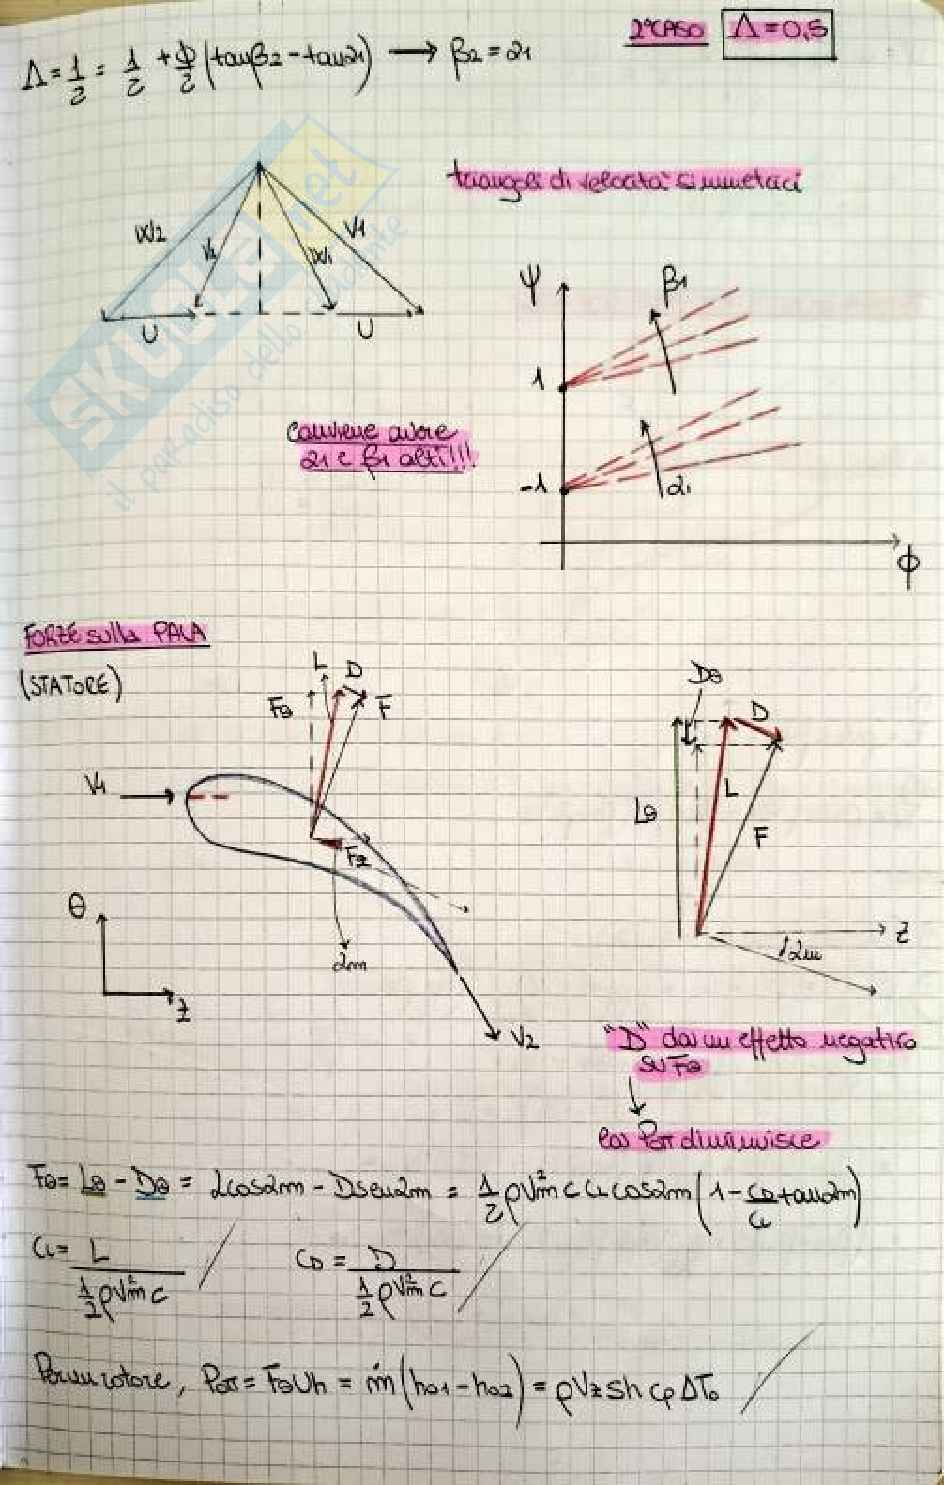 2° CASO Λ=0,5
Λ = 1/2 = 1/2 + ϕ/2 (tanβ2 - tanα1) → β2 = α1
triangoli di velocità simmetrici
W2 V2 W1 V1
U U
ψ β1
1
conviene avere
α1 e β1 alti!!!
-1 α1
ϕ
SKUOLA.net
il paradiso dello studente
FORZE sulla PALA
(STATORE)
L D
Fθ F
V1
Fz
θ
αm
z
V2
Dθ
D
Lθ L
F
z
αm
"D" dà un effetto negativo
su Fθ
↓
la Pott diminuisce
Fθ = Lθ - Dθ = Lcosαm - Dsenαm = 1/2 ρVm² c CL cosαm (1 - CD/CL tanαm)
CL = L / (1/2 ρVm² c) CD = D / (1/2 ρVm² c)
Per un rotore, Pott = FθUh = ṁ(h01 - h02) = ρVz s h cp ΔT0